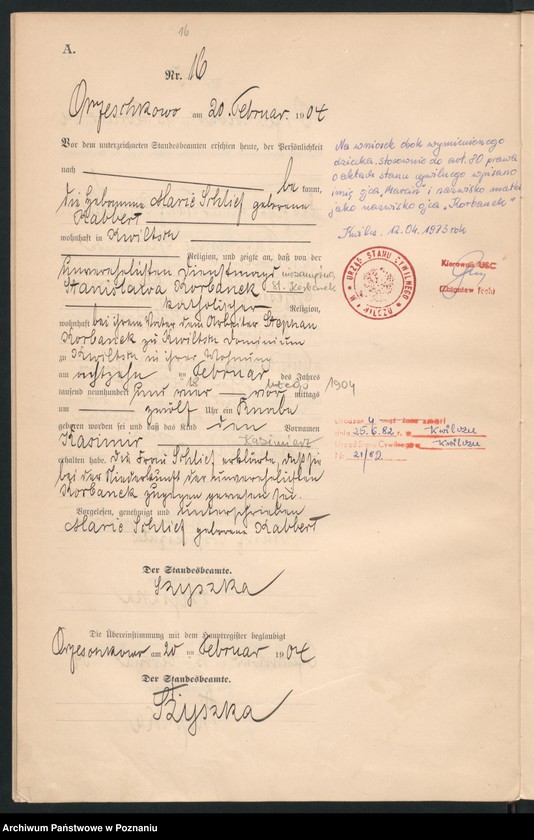 16
A.
Nr. 16
Orzeschkowo am 20. Februar. 1904
Vor dem unterzeichneten Standesbeamten erschien heute, der Persönlichkeit
nach be kannt,
die Hebeamme Marie Schlief geborene
Kabbert
wohnhaft in Kwiltsch
Religion, und zeigte an, daß von der
unverehelichten Dienstmagd niezamężna
Stanislawa Korbanek St. Korbanek
katholischer Religion,
wohnhaft bei ihrem Vater dem Arbeiter Stephan
Korbanek zu Kwiltsch Dominium
zu Kwiltsch in ihrer Wohnung
am achtzehn ten Februar des Jahres
18 lutego 1904
tausend neunhundert und vier vor mittags
um zwölf Uhr ein Knabe
geboren worden sei und daß das Kind den Vornamen
Kasimir Kazimierz
erhalten habe. Die Frau Schlief erklärte, daß sie
bei der Niederkunft der unverehelichten
Korbanek zugegen gewesen sei.
Vorgelesen, genehmigt und unterschrieben
Marie Schlief geborene Kabbert
Der Standesbeamte.
Szyszka
Die Übereinstimmung mit dem Hauptregister beglaubigt
Orzeschkowo am 20 ten Februar 1904
Der Standesbeamte.
Szyszka
Na wniosek obok wymienionego
dziecka stosownie do art. 80 prawa
o aktach stanu cywilnego wpisano
imię ojca "Marcin" i nazwisko matki
jako nazwisko ojca "Korbanek"
Kwilcz, 12.04.1973 rok
URZĄD STANU CYWILNEGO W KWILCZU
Kierownik USC
4
dnia 25.6.82 r. w Kwilczu
Urząd Stanu Cywilnego w Kwilczu
Nr. 21/82
Archiwum Państwowe w Poznaniu